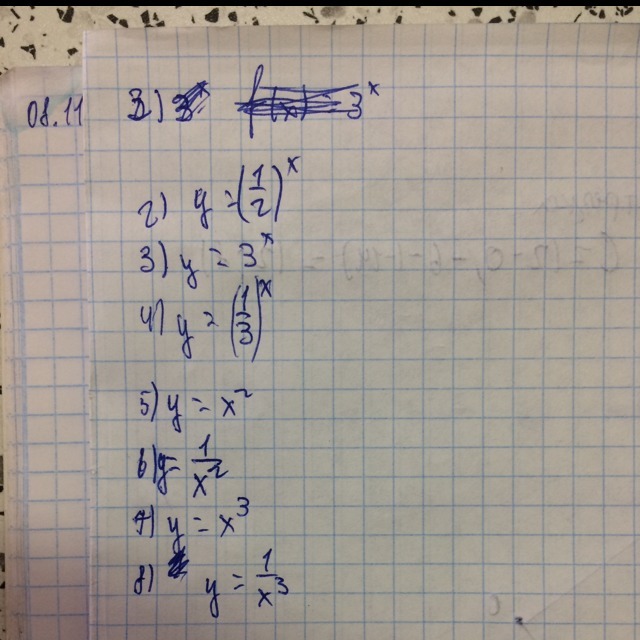 08.11
3) 3^x
2) y = (1/2)^x
3) y = 3^x
4) y = (1/3)^x
5) y = x^2
6) y = 1/x^2
7) y = x^3
8) y = 1/x^3